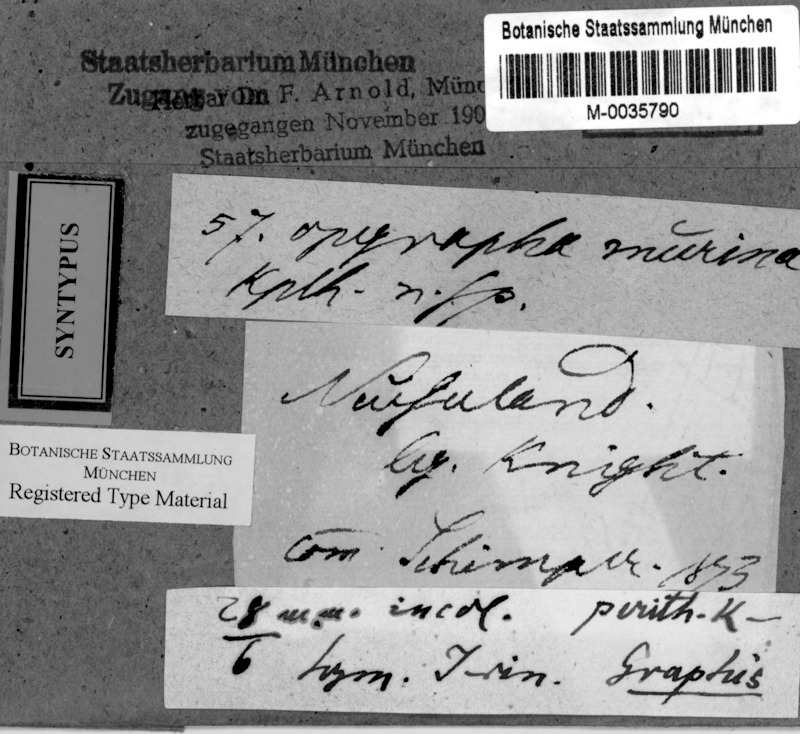 Botanische Staatssammlung München
M-0035790
Staatsherbarium München
Zugang von
Herbar Dr. F. Arnold, Münc
zugegangen November 190
Staatsherbarium München
SYNTYPUS
57. opegrapha murina
Kplh. n. sp.
Neuseeland.
lg. Knight.
com Schimper. 1873
BOTANISCHE STAATSSAMMLUNG
MÜNCHEN
Registered Type Material
28 m.m. incol. perith. K–
6 hym. J vin. Graphis